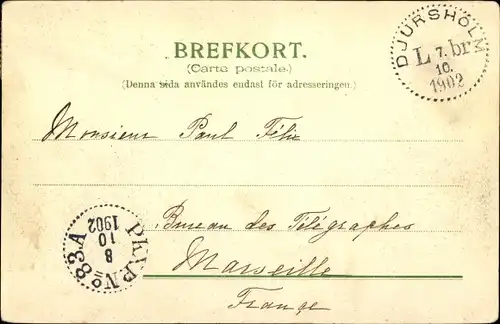 BREFKORT.
(Carte postale.)
(Denna sida användes endast för adresseringen.)
DJURSHOLM
L 7. br
10.
1902
Monsieur Paul Félix
Bureau des Télégraphes
Marseille
France
PKXP No 83A
8
10
1902